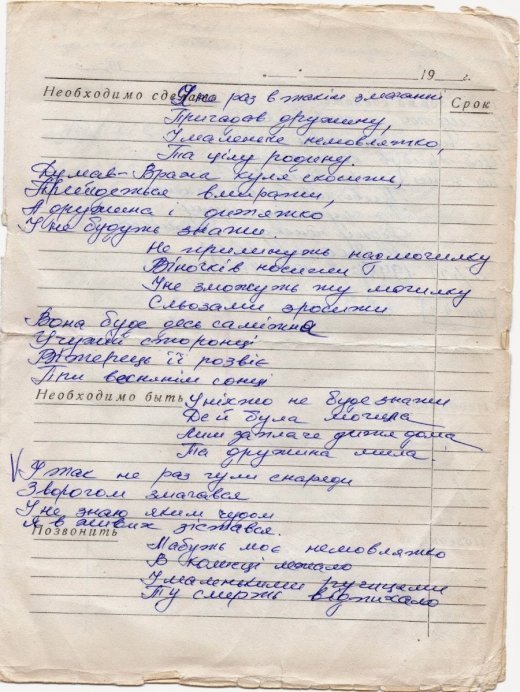 19 г.
Необходимо сделать
Срок
Уне раз в такім змаганні
Пригадав дружину,
І маленьке немовлятко,
Та цілу родину.
Думав - Вража куля скосити,
Прийдеться вмирати,
А дружина і дитятко
І не будуть знати.
Не прилинуть на могилку
Віночків носити
І не зможуть ту могилку
Сльозами зросити
Вона буде десь самітна
У чужій стороніці
Вітерець її розвіє
При веснянім сонці
Необходимо быть
І ніхто не буде знати
Де й була могила
Лиш заплаче дитя дома
Та дружина мила.
V І так не раз гули снаряди
З ворогом змагався
І не знаю яким чудом
Я в живих зістався.
Позвонить
Мабуть моє немовлятко
В колисці лежало
І маленькими ручицями
Ту смерть відпихало